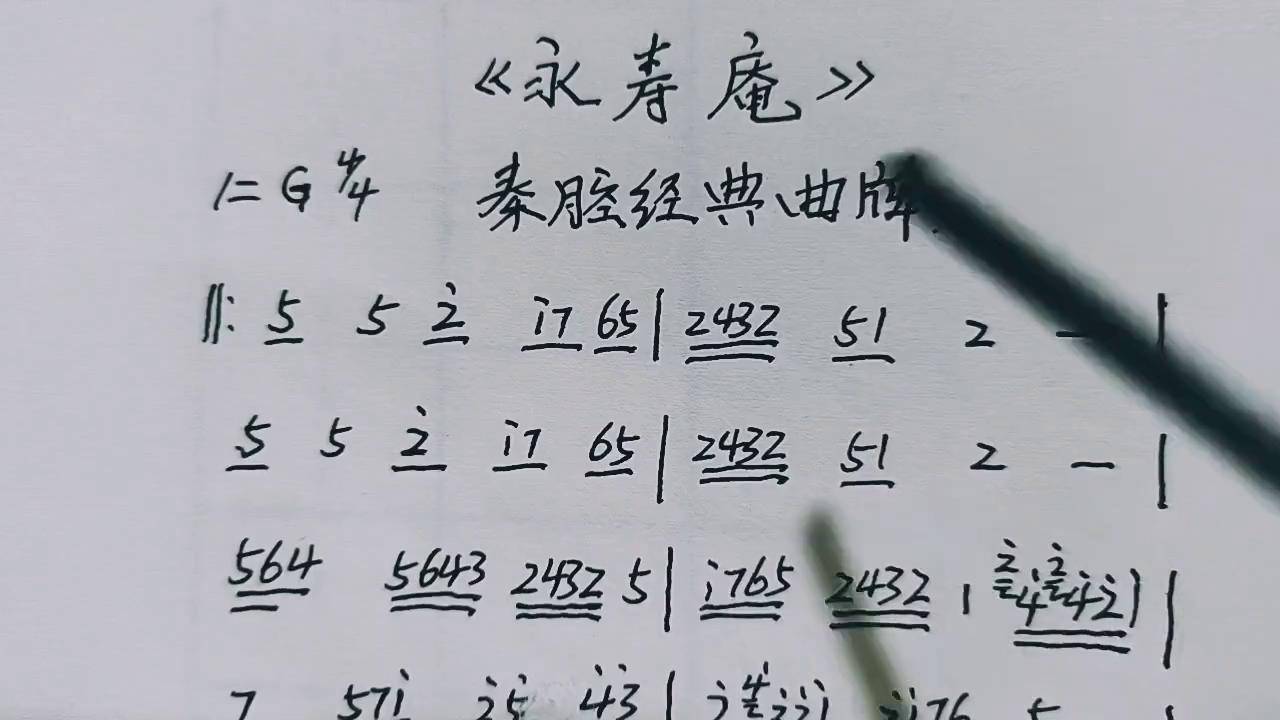 《永寿庵》
1=G 4/4 秦腔经典曲牌
‖: 5 5 2̇ i̇7 65 | 2432 51 2 — |
5 5 2̇ i̇7 65 | 2432 51 2 — |
564 5643 2432 5 | i̇765 2432 1
7 57i̇ 2̇5 4̇3̇ |